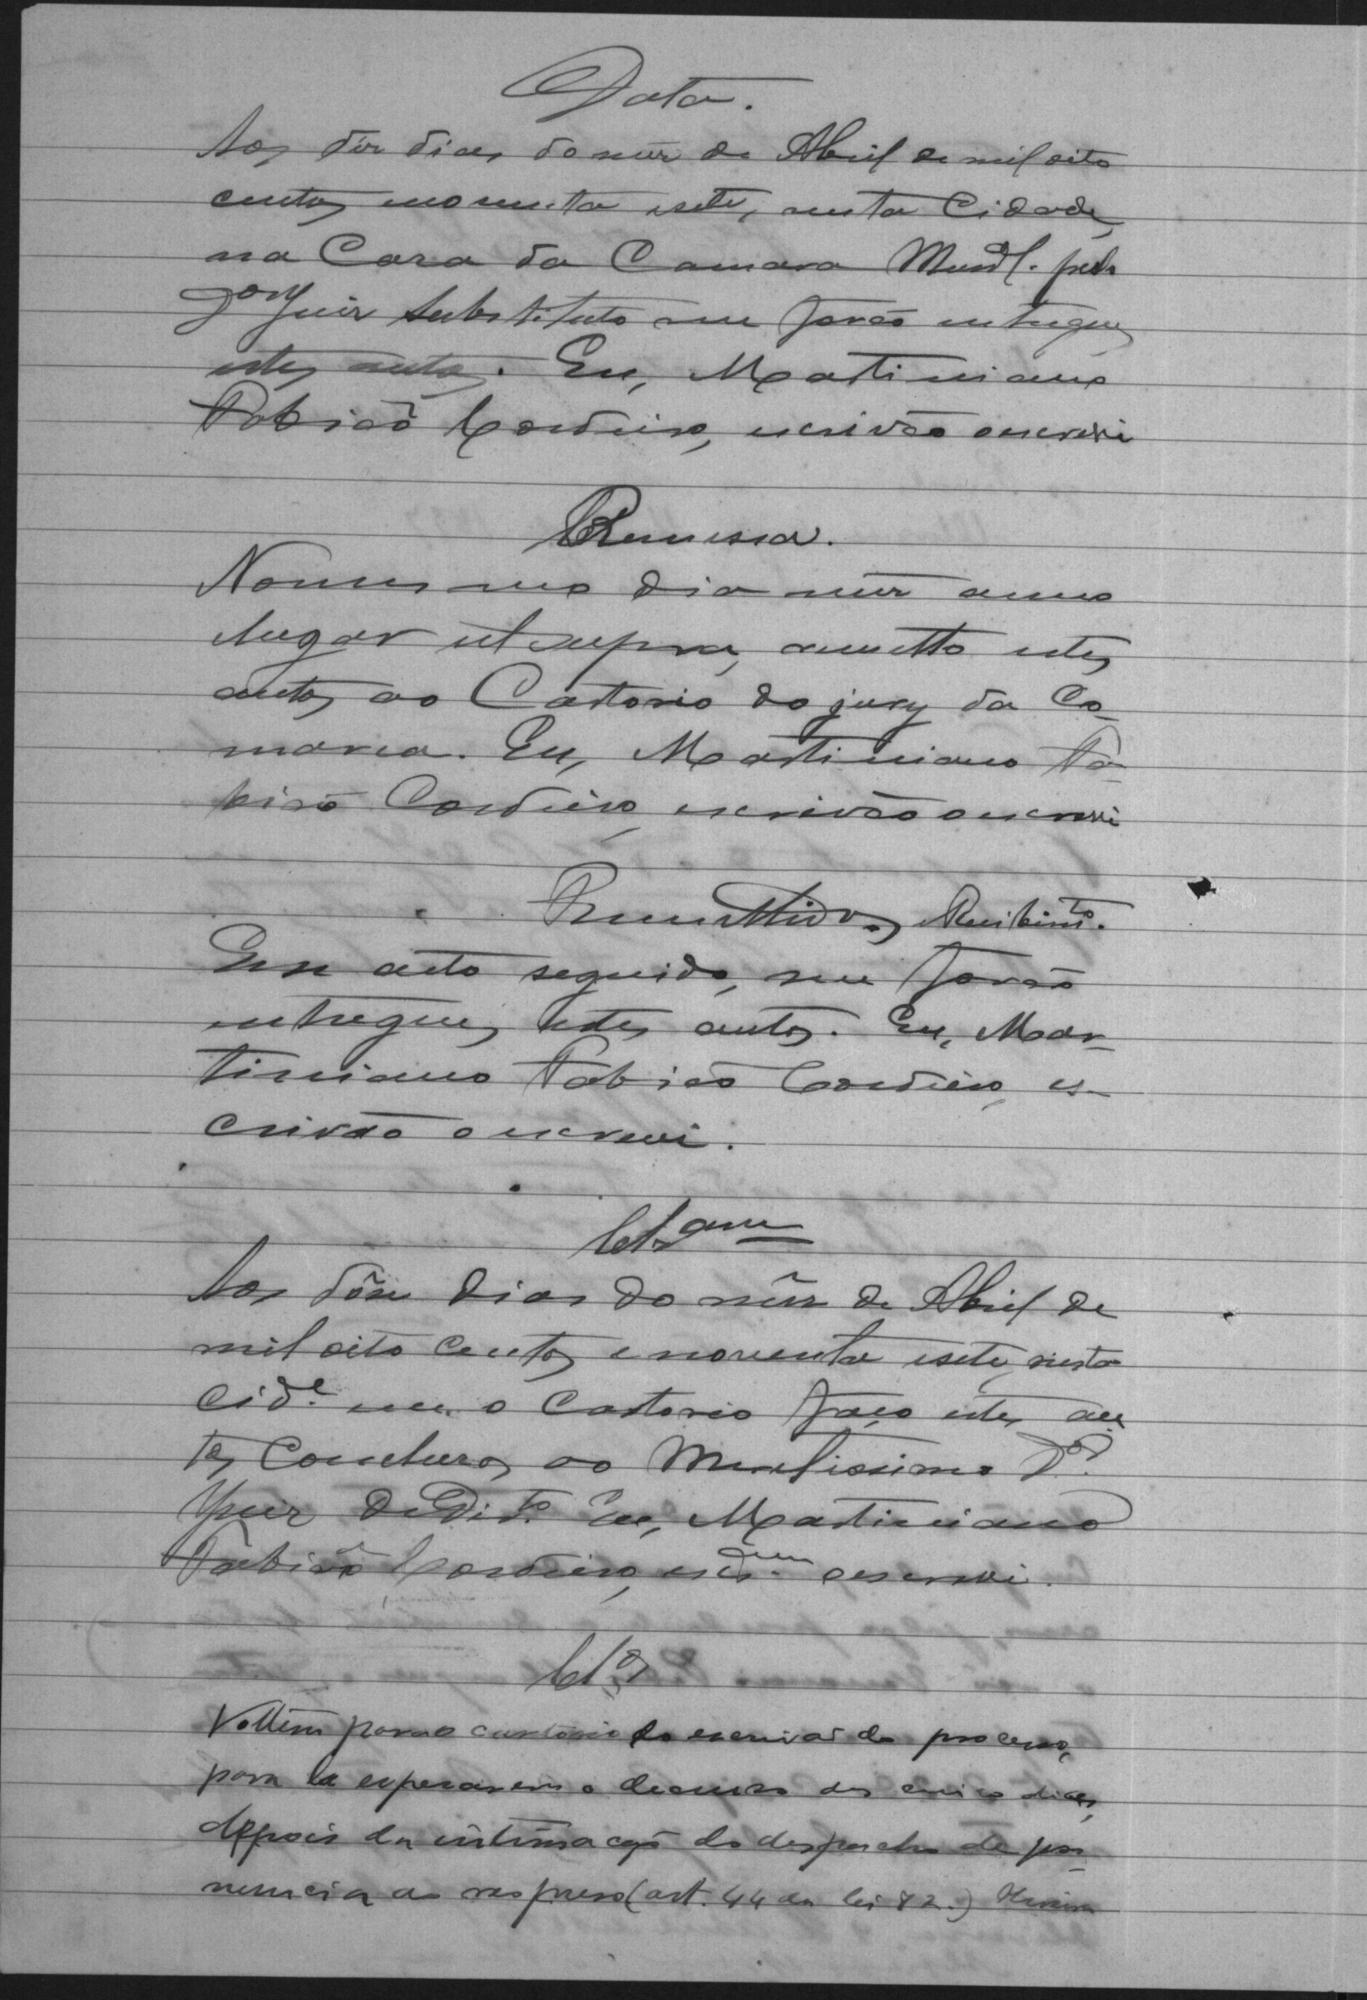 Data.
Aos dez dias do mez de Abril de mil oito
centos noventa e sete, nesta Cidade,
na Casa da Camara Munal. pelo
Juiz substituto me forão entregues
estes autos. Eu, Martiniano
Fabião Cordeiro, escrivão o escrevi
Remessa.
No mesmo dia mez anno
lugar ut supra, remetto estes
autos ao Cartorio do jury da Co-
marca. Eu, Martiniano Fa-
bião Cordeiro, escrivão o escrevi
Recibimto.
Em acto seguido, me forão
entregues estes autos. Eu, Mar-
tiniano Fabião Cordeiro, es-
crivão o escrevi.
Clsam
Aos dôse dias do mêz de Abril de
mil oito centos e noventa e sete, nesta
Cide. em o Cartorio faço estes au
tos Conclusos ao Meretissimo Dor.
Juiz de Dirto. Eu, Martiniano
Fabião Cordeiro, escram o escrevi.
Clos
Voltem para o cartorio do escrivão do processo,
para la esperarem o decurso dos cinco dias,
depois da intimação do despacho de pro-
nuncia ao reo preso (art. 44 da lei 82.)